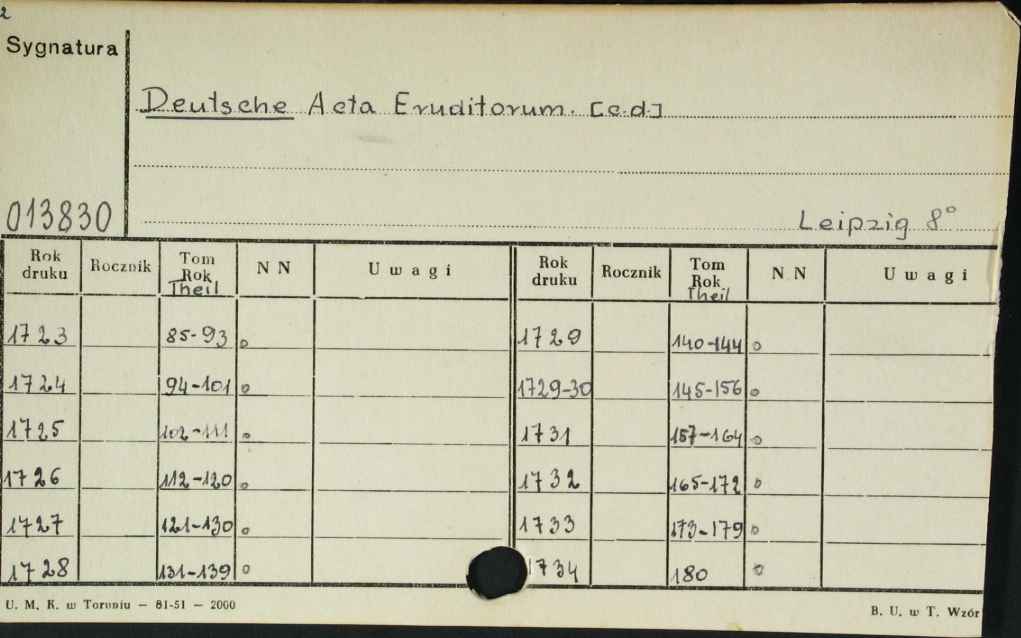 2
Sygnatura
Deutsche Acta Eruditorum. [c.d.]
013830
Leipzig 8°
Rok druku Rocznik Tom Rok Theil NN Uwagi Rok druku Rocznik Tom Rok Theil NN Uwagi
1723 85-93 o 1729 140-144 o
1724 94-101 o 1729-30 145-156 o
1725 102-111 o 1731 157-164 o
1726 112-120 o 1732 165-172 o
1727 121-130 o 1733 173-179 o
1728 131-139 o 1734 180 o
U. M. K. w Toruniu — 81-51 — 2000 B. U. w T. Wzór